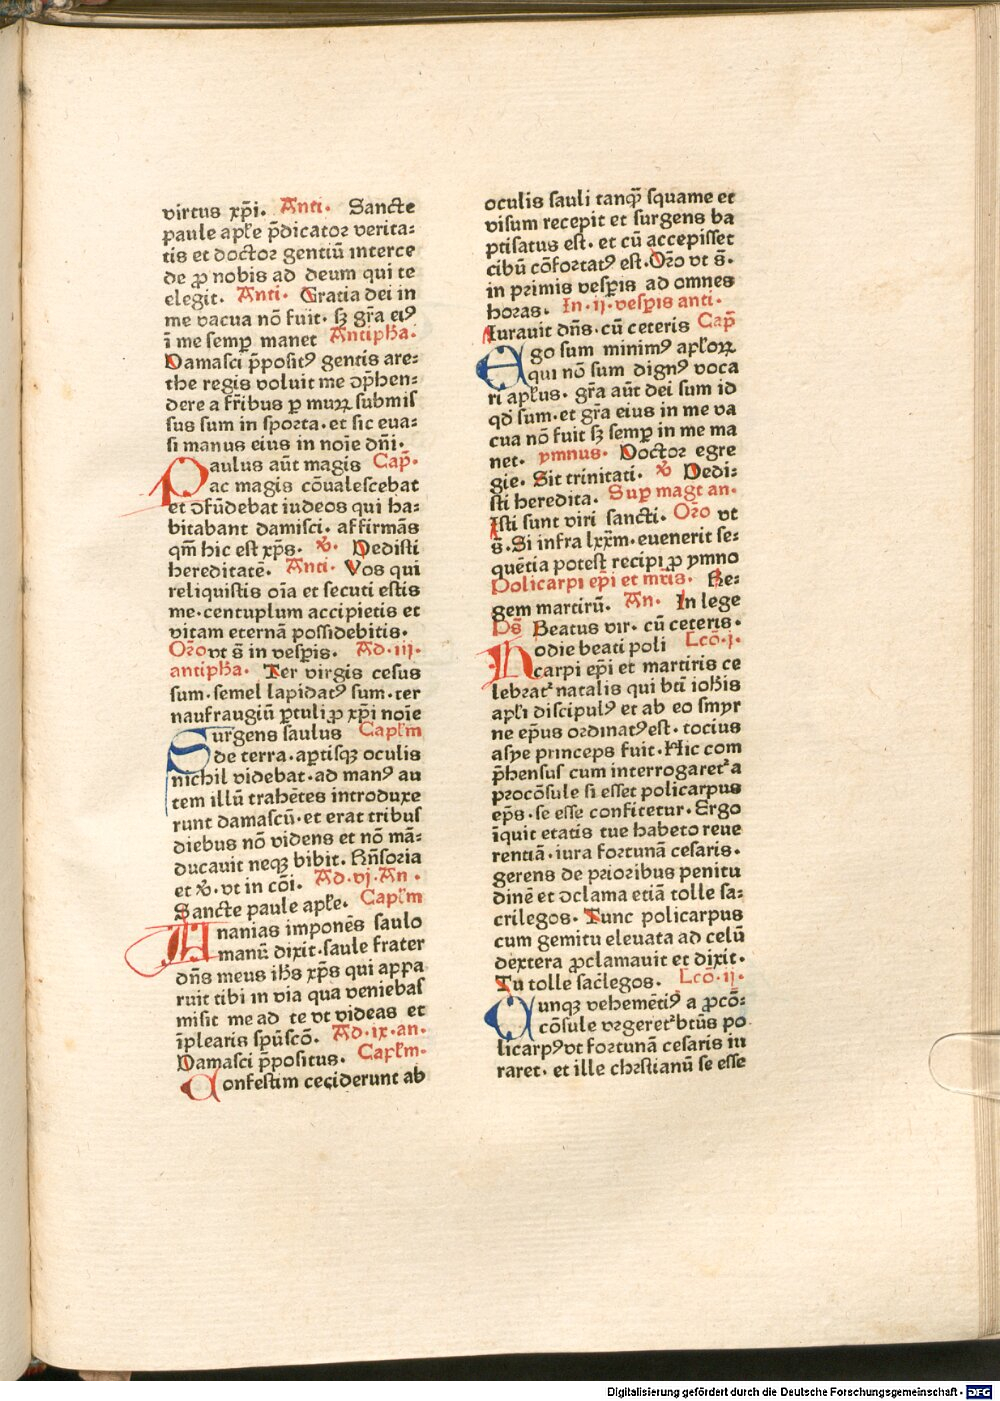 virtus xp̄i. Anti. Sancte
paule apl̄e p̄dicator verita:
tis et doctor gentiū interce
de ꝓ nobis ad deum qui te
elegit. Anti. Gratia dei in
me vacua nō fuit. sꝫ gr̄a eiꝰ
ī me semꝑ manet Antipha.
Damasci p̄positꝰ gentis are:
the regis voluit me dp̄hen:
dere a fr̄ibus ꝑ muꝝ submis
sus sum in sporta. et sic eua:
si manus eius in noīe dn̄i.
Paulus aūt magis Cap̄.
ac magis cōualescebat
et ꝯfūdebat iudeos qui ha:
bitabant damisci. affirmās
qm̄ hic est xp̄s. ꝟ. Dedisti
hereditatē. Anti. Vos qui
reliquistis oīa et secuti estis
me. centuplum accipietis et
vitam eternā possidebitis.
Or̄o vt s̄ in vesꝑis. Ad. iij.
antipha. Ter virgis cesus
sum. semel lapidatꝰ sum. ter
naufraugiū ꝑtuli ꝓ xp̄i noīe
Surgens saulus Capl̄m
de terra. aꝑtisqꝫ oculis
nichil videbat. ad manꝰ au
tem illū trahētes introduxe
runt damascū. et erat tribus
diebus nō videns et nō mā:
ducauit neqꝫ bibit. Rn̄soria
et ꝟ. vt in cōi. Ad. vj. An.
Sancte paule apl̄e. Capl̄m
Ananias imponēs saulo
manū dixit. saule frater
dn̄s meus ih̄s xp̄s qui appa
ruit tibi in via qua veniebas
misit me ad te vt videas et
īplearis spūscō. Ad. ix. an.
Damasci p̄positus. Capl̄m.
Confestim ceciderunt ab
oculis sauli tanq̄ squame et
visum recepit et surgens ba
ptisatus est. et cū accepisset
cibū cōfortatꝰ est. Or̄o vt s̄.
in primis vesꝑis ad omnes
horas. In. ij. vesꝑis anti.
Iurauit dn̄s. cū ceteris Cap̄
Ego sum minimꝰ apl̄oꝝ
qui nō sum dignꝰ voca
ri apl̄us. gr̄a aūt dei sum id
qd̄ sum. et gr̄a eius in me va
cua nō fuit sꝫ semꝑ in me ma
net. ymnus. Doctor egre
gie. Sit trinitati. ꝟ Dedi:
sti heredita. Suꝑ magt an.
Isti sunt viri sancti. Or̄o vt
s̄. Si infra lxxm̄. euenerit se:
quētia potest recipi ꝓ ymno
Policarpi ep̄i et mr̄is. Re:
gem martirū. An. In lege
Ps̄ Beatus vir. cū ceteris.
Hodie beati poli Lcō. j.
carpi ep̄i et martiris ce
lebratᷣ natalis qui btī ioh̄is
apl̄i discipulꝰ et ab eo smyr
ne ep̄us ordinatꝰ est. tocius
asye princeps fuit. Hic com
p̄hensus cum interrogaretᷣ a
procōsule si esset policarpus
ep̄s. se esse confitetur. Ergo
īquit etatis tue habeto reue
rentiā. iura fortunā cesaris.
gerens de prioribus penitu
dinē et ꝺclama etiā tolle sa:
crilegos. Tunc policarpus
cum gemitu eleuata ad celū
dextera ꝓclamauit et dixit.
Tu tolle sac̄legos. Lcō. ij.
Cunqꝫ vehemētiꝰ a ꝓcō:
cōsule vrgeretᷣ btūs po
licarpꝰ vt fortunā cesaris iu
raret. et ille chrstianū se esse
Digitalisierung gefördert durch die Deutsche Forschungsgemeinschaft - DFG